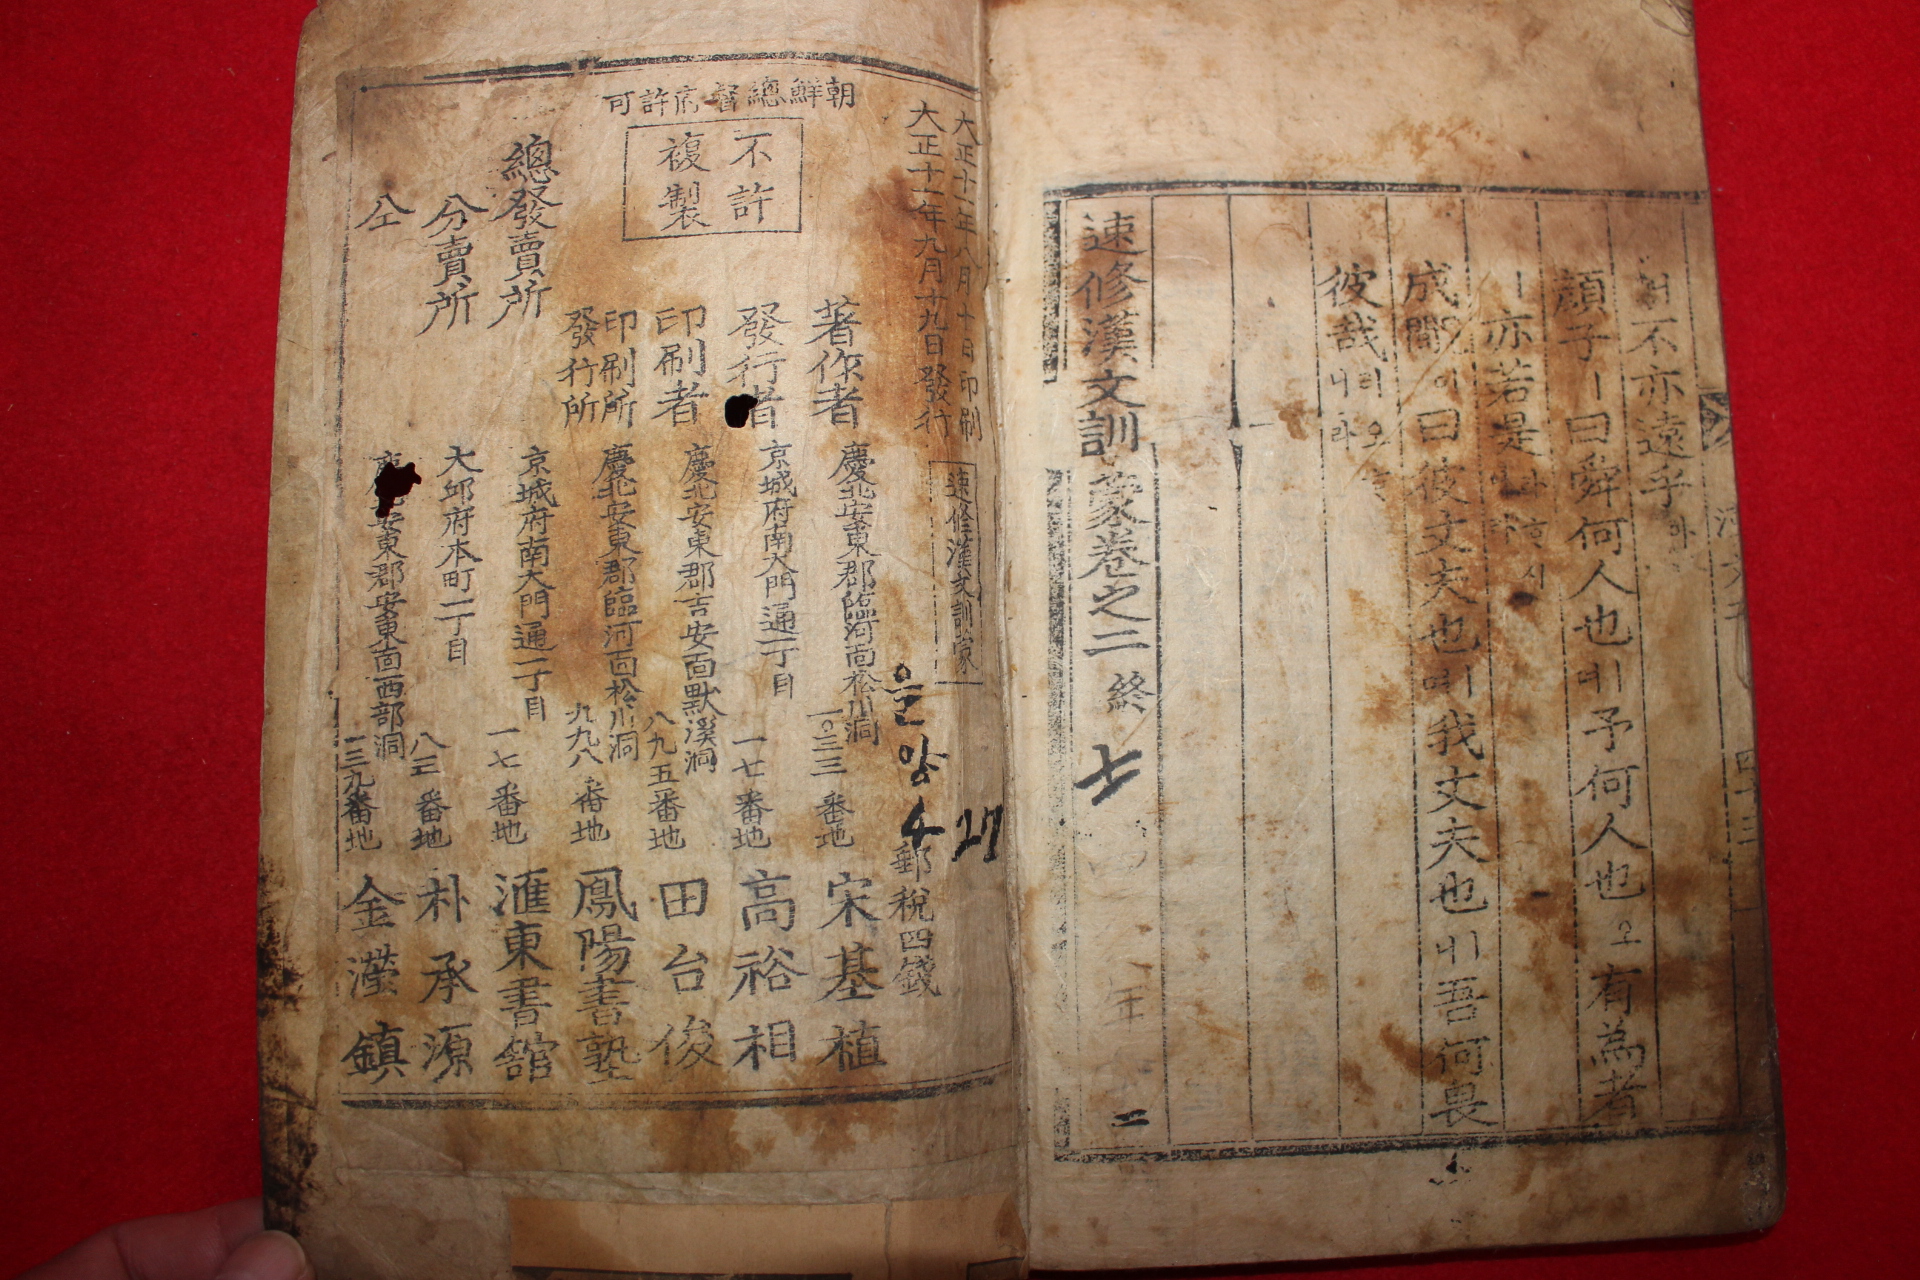 不亦遠乎
顔子ㅣ曰舜何人也ㅣ며予何人也오有爲者
ㅣ亦若是
成覵이曰彼丈夫也며我丈夫也ㅣ니吾何畏
彼哉리오니라
速修漢文訓蒙卷之二 終
七
年
二
四十三
朝鮮總督府許可
大正十一年八月十日印刷
大正十一年九月十九日發行
速修漢文訓蒙
郵稅四錢
4 27
不許
複製
著作者 慶北安東郡臨河面松川洞 一〇三三番地 宋基植
發行者 京城府南大門通一丁目 一七番地 高裕相
印刷者 慶北安東郡吉安面默溪洞 八九五番地 田台俊
印刷所
發行所 慶北安東郡臨河面松川洞 九九八番地 鳳陽書塾
總發賣所 京城府南大門通一丁目 一七番地 滙東書舘
分賣所 大邱府本町二丁目 八三番地 朴承源
仝 慶北安東郡安東面西部洞 一三九番地 金瀅鎭